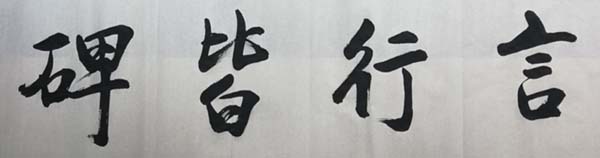 言行皆碑